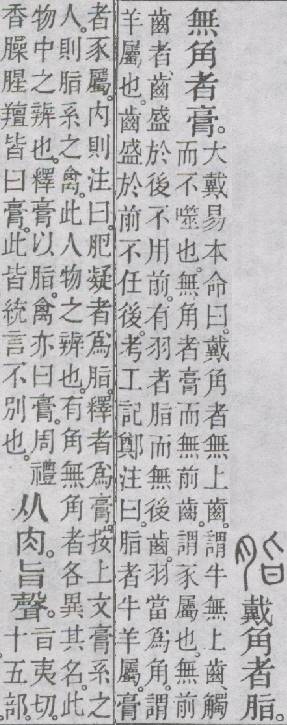 脂 戴角者脂。
無角者膏。
大戴易本命曰。戴角者無上齒。謂牛無上齒觸
而不噬也。無角者膏而無前齒。謂豕屬也。無前
齒者、齒盛於後不用前。有羽者脂而無後齒。羽當爲角。謂
羊屬也。齒盛於前不任後。考工記鄭注曰。脂者牛羊屬。膏
者豕屬。內則注曰。肥凝者爲脂。釋者爲膏。按上文膏系之
人。則脂系之禽。此人物之辨也。有角無角者各異其名。此
物中之辨也。釋膏以脂。禽亦曰膏。周禮
香臊腥羶皆曰膏。此皆統言不別也。
从肉。旨聲。
旨夷切。
十五部。